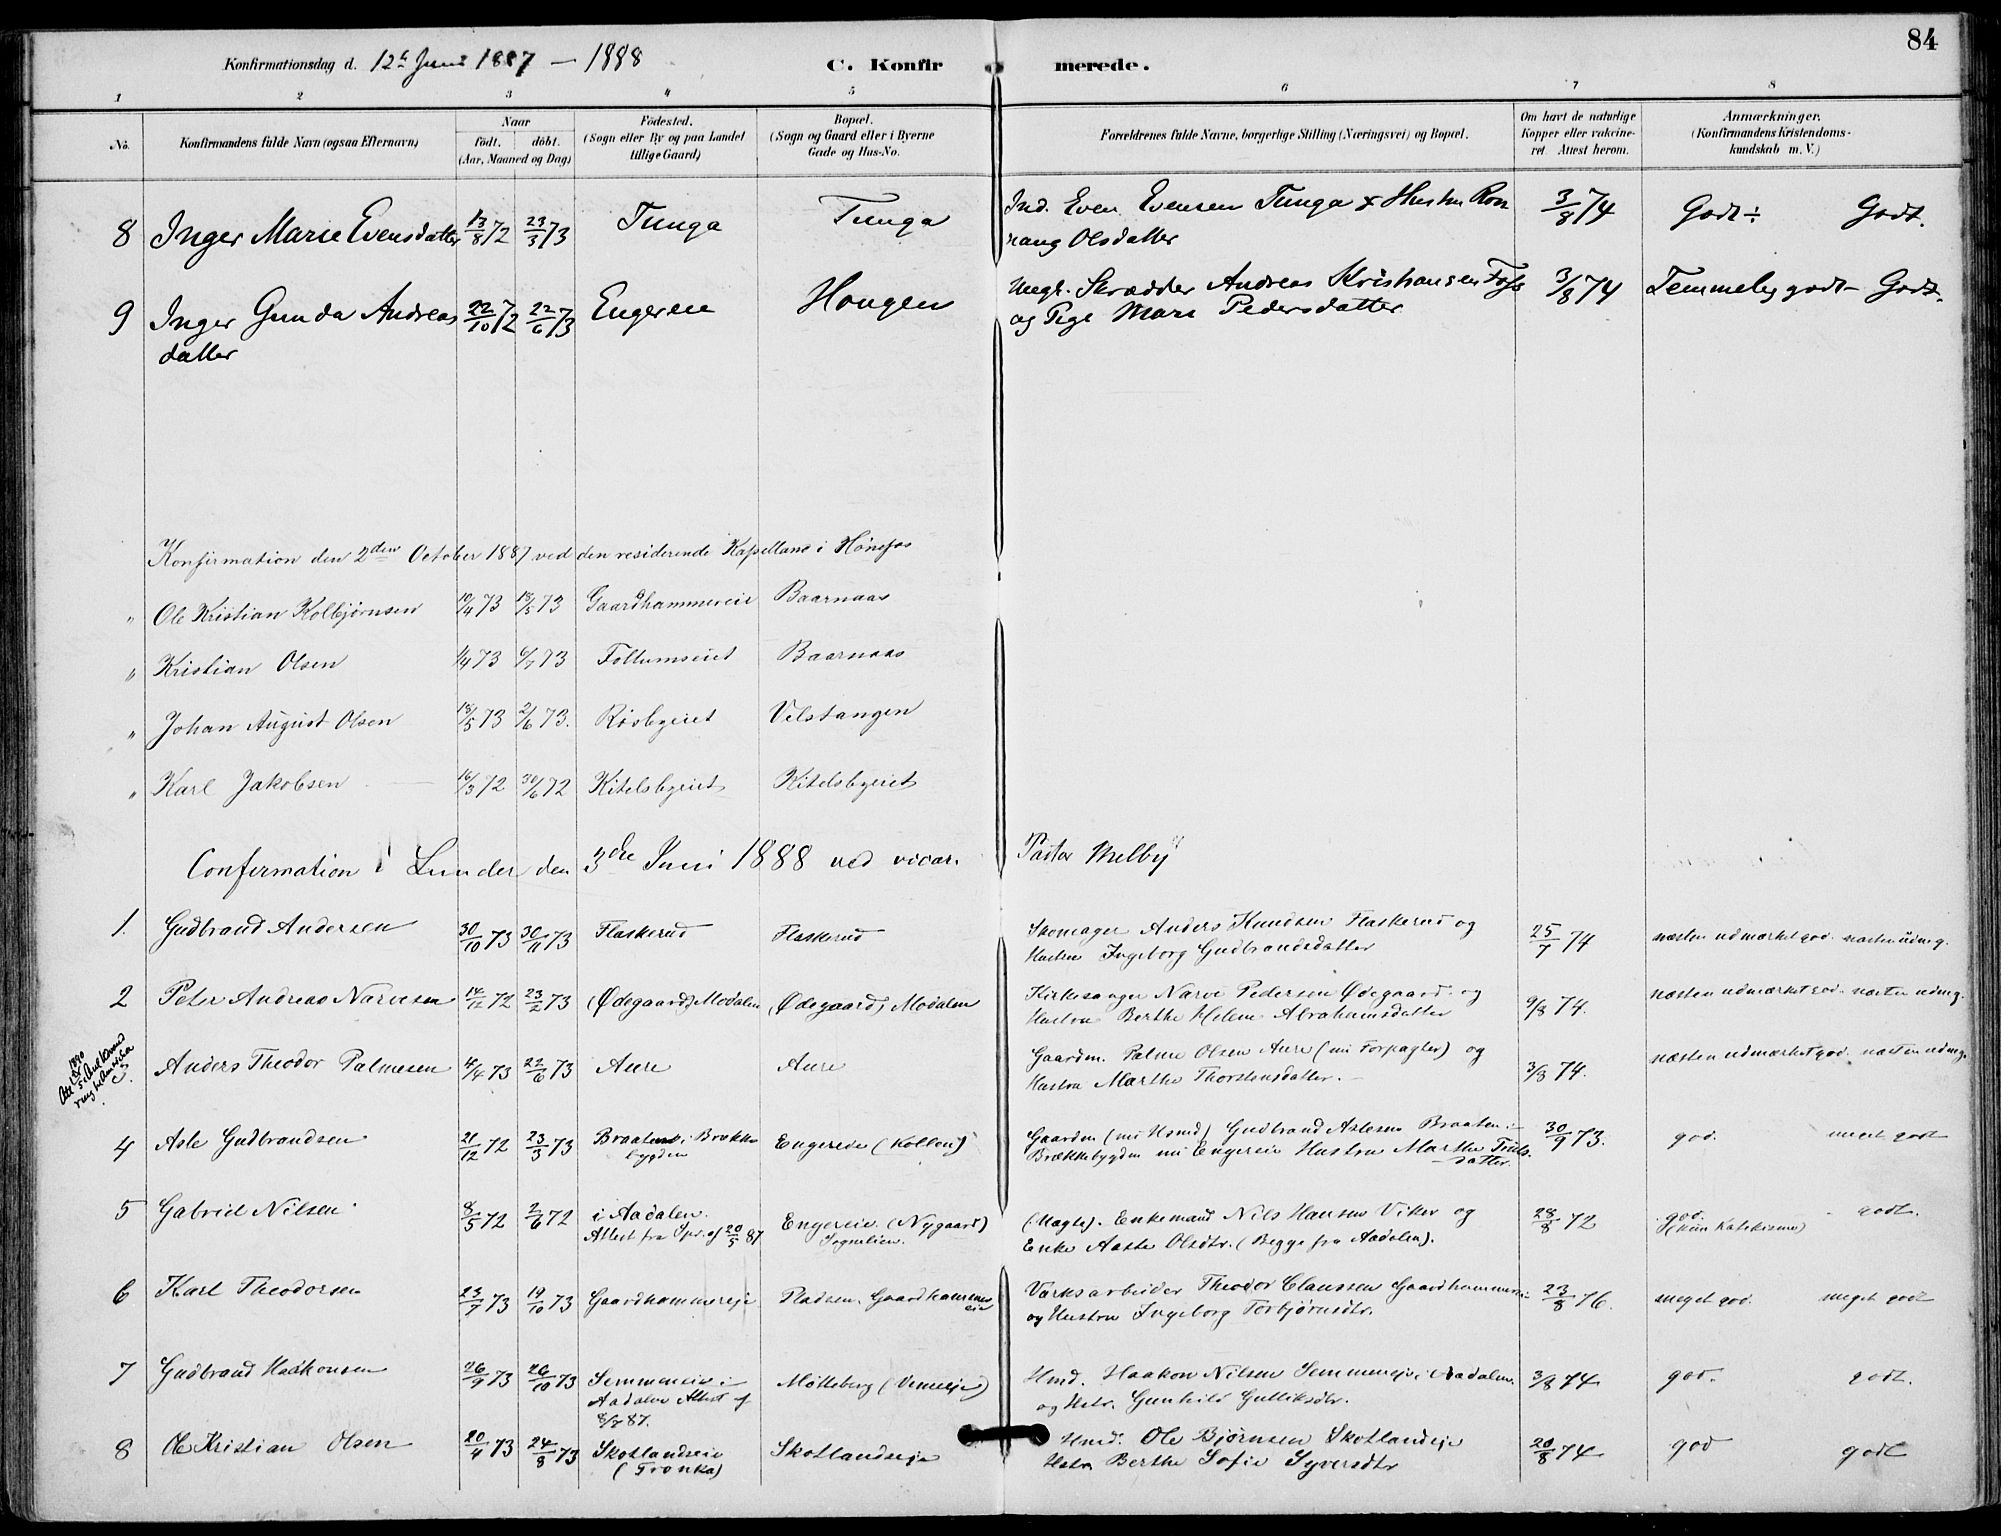 84
Konfirmationsdag d. 12te Juni 1887 — 1888 C. Konfirmerede.
1 2 3 4 5 6 7 8
No. Konfirmandens fulde Navn (ogsaa Efternavn) Naar född. döbt. (Aar, Maaned og Dag) Födested. (Sogn eller By og paa Landet tillige Gaard) Bopæl. (Sogn og Gaard eller i Byerne Gade og Hus-No. Forældrenes fulde Navne, borgerlige Stilling (Næringsvei) og Bopæl. Om havt de naturlige Kopper eller vakcineret. Attest herom. Anmærkninger. (Konfirmandens Kristendomskundskab m. V.)
8 Inger Marie Evensdatter 13/8 72 23/3 73 Tunga Tunga Ind. Even Evensen Tunga & Hustru Ron
naug Olsdatter 3/8 74 Godt ÷ Godt.
9 Inger Gunda Andreas 22/10 72 22/6 73 Engereie Hougen Ungk. Skrædder Andreas Kristiansen Foss
datter og Pige Mari Pedersdatter 3/8 74 Temmelig godt — Godt.
Konfirmation den 2den October 1887 ved den residerende Kapellan i Hönefos
" Ole Kristian Kolbjørnsen 10/4 73 18/5 73 Gaardhammereie Baarnaas
" Kristian Olsen 1/4 73 6/7 73 Follumseiet Baarnaas
" Johan August Olsen 18/5 73 2/6 73. Risbyeiet Velstangen
" Karl Jakobsen 16/3 72 30/6 72 Kitelsbyeiet Kitelsbyeiet
Confirmation i Lunder den 3die Juni 1888 ved vicar. Pastor Melby
1. Gudbrand Andersen 30/10 73 30/11 73 Flaskerud Flaskerud Skomager Anders Knudsen Flaskerud og
Hustru Ingeborg Gudbrandsdatter 25/7 74 næsten udmærket god. næsten udmg.
2 Peter Andreas Narvesen 14/12 72 23/2 73 (Ødegaard) Modalen (Ødegaard) Modalen Kirkesanger Narve Pedersen Ødegaard og
Hustru Berthe Helene Abrahamsdatter 9/8 74. næsten udmærket god. næsten udmg.
3. Anders Theodor Palmesen 4/4 73 22/6 73 Aure Aure Gaardm. Palme Olsen Aure (nu Forpagter) og
Hustru Marthe Thorstensdatter. — 3/8 74. næsten udmærket god. næsten udmg.
4 Asle Gudbrandsen 21/12 72 23/3 73 Braaten i Brække
bygden Engereie (Kollen) Gaardm (nu Husmd) Gudbrand Aslesen Braaten i
Brækkebygden nu Engereie Hustru Marthe Truls
datter. 30/9 73. god. meget godt
5 Gabriel Nilsen 8/5 72 2/6 72 i Aadalen.
Attest fra Spr. af 20/5 87 Engereie (Nygaard)
Sognelien. (Uægte). Enkemand Nils Hansen Viker og
Enke Aaste Olsdtr. (Begge fra Aadalen). 28/8 72 god.
(kun Katekismus) godt.
6 Karl Theodorsen 23/7 73 19/10 73 Gaardhammereje Pladsen. Gaardhammer
eie Værksarbeider Theodor Claussen Gaardhammerei
og Hustru Ingeborg Torbjørnsdtr. 23/8 76. meget god. meget godt
7 Gudbrand Haakonsen 26/9 73 26/10 73 Semmeneie i
Aadalen Attest af
8/8 87. Møtteberg (Vemeeje) Hmd. Haakon Nilsen Semmeneje i Aadalen.
og Hstr. Gunhild Gulliksdtr. 3/8 74 god. godt.
8 Ole Kristian Olsen 20/4 73 24/8 73 Skotlandseie
(Tronka) Skotlandseje Hmd. Ole Bjørnsen Skotlandeje
Hstr. Berthe Sofie Syversdtr 20/8 74 god godt